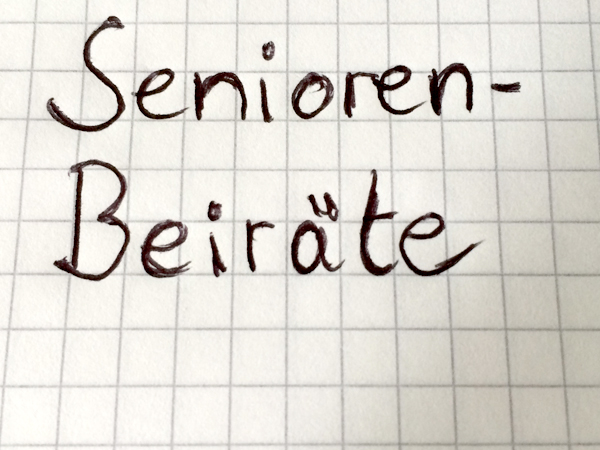 Senioren-
Beiräte